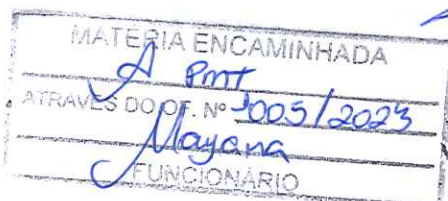 MATÉRIA ENCAMINHADA
A PMT
ATRAVÉS DO OF. Nº 1005/2023
Mayana
FUNCIONÁRIO